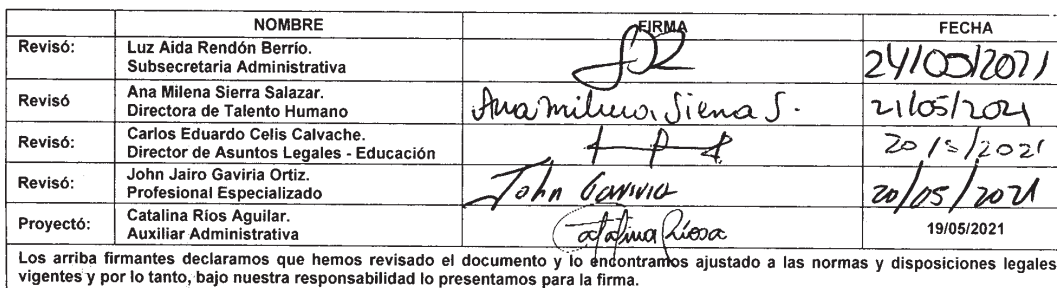 NOMBRE FIRMA FECHA
Revisó: Luz Aida Rendón Berrío.
Subsecretaria Administrativa
24/05/2021
Revisó Ana Milena Sierra Salazar.
Directora de Talento Humano
Ana Milena Sierra S. 21/05/2021
Revisó: Carlos Eduardo Celis Calvache.
Director de Asuntos Legales - Educación
20/5/2021
Revisó: John Jairo Gaviria Ortiz.
Profesional Especializado
John Gaviria 20/05/2021
Proyectó: Catalina Ríos Aguilar.
Auxiliar Administrativa
Catalina Ríos 19/05/2021
Los arriba firmantes declaramos que hemos revisado el documento y lo encontramos ajustado a las normas y disposiciones legales
vigentes y por lo tanto, bajo nuestra responsabilidad lo presentamos para la firma.